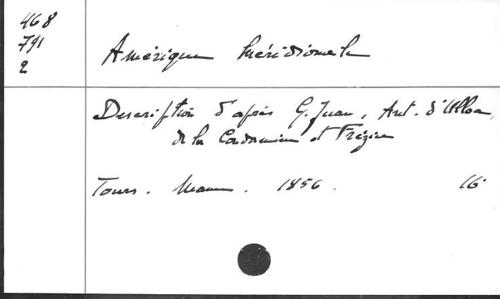 468
791
2
Amérique méridionale
Description d'après G. Juan, Ant. d'Ulloa,
de la Condamine et Frézier
Tours. Mame. 1856. 16°